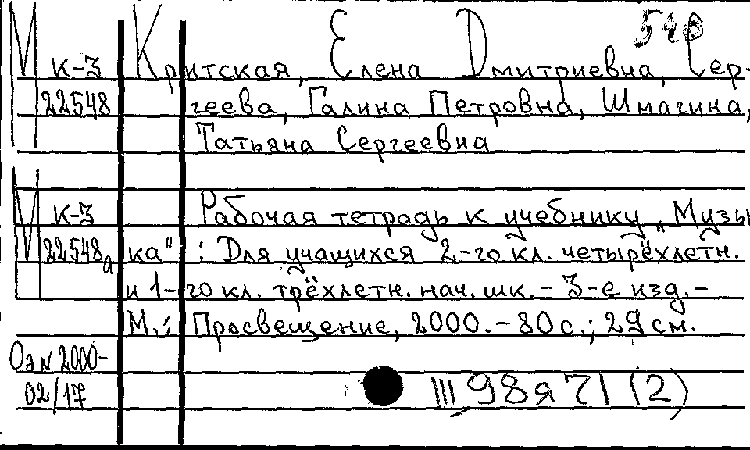 548
М к-3 Критская, Елена Дмитриевна, Сер-
22548 геева, Галина Петровна, Шмагина,
Татьяна Сергеевна
М к-3 Рабочая тетрадь к учебнику „Музы
22548а ка" : Для учащихся 2-го кл. четырёхлетн.
и 1-го кл. трёхлетн. нач. шк. - 3-е изд. -
М.: Просвещение, 2000. - 80 с.; 29 см.
2000-
02/17 III 98я71 (2)